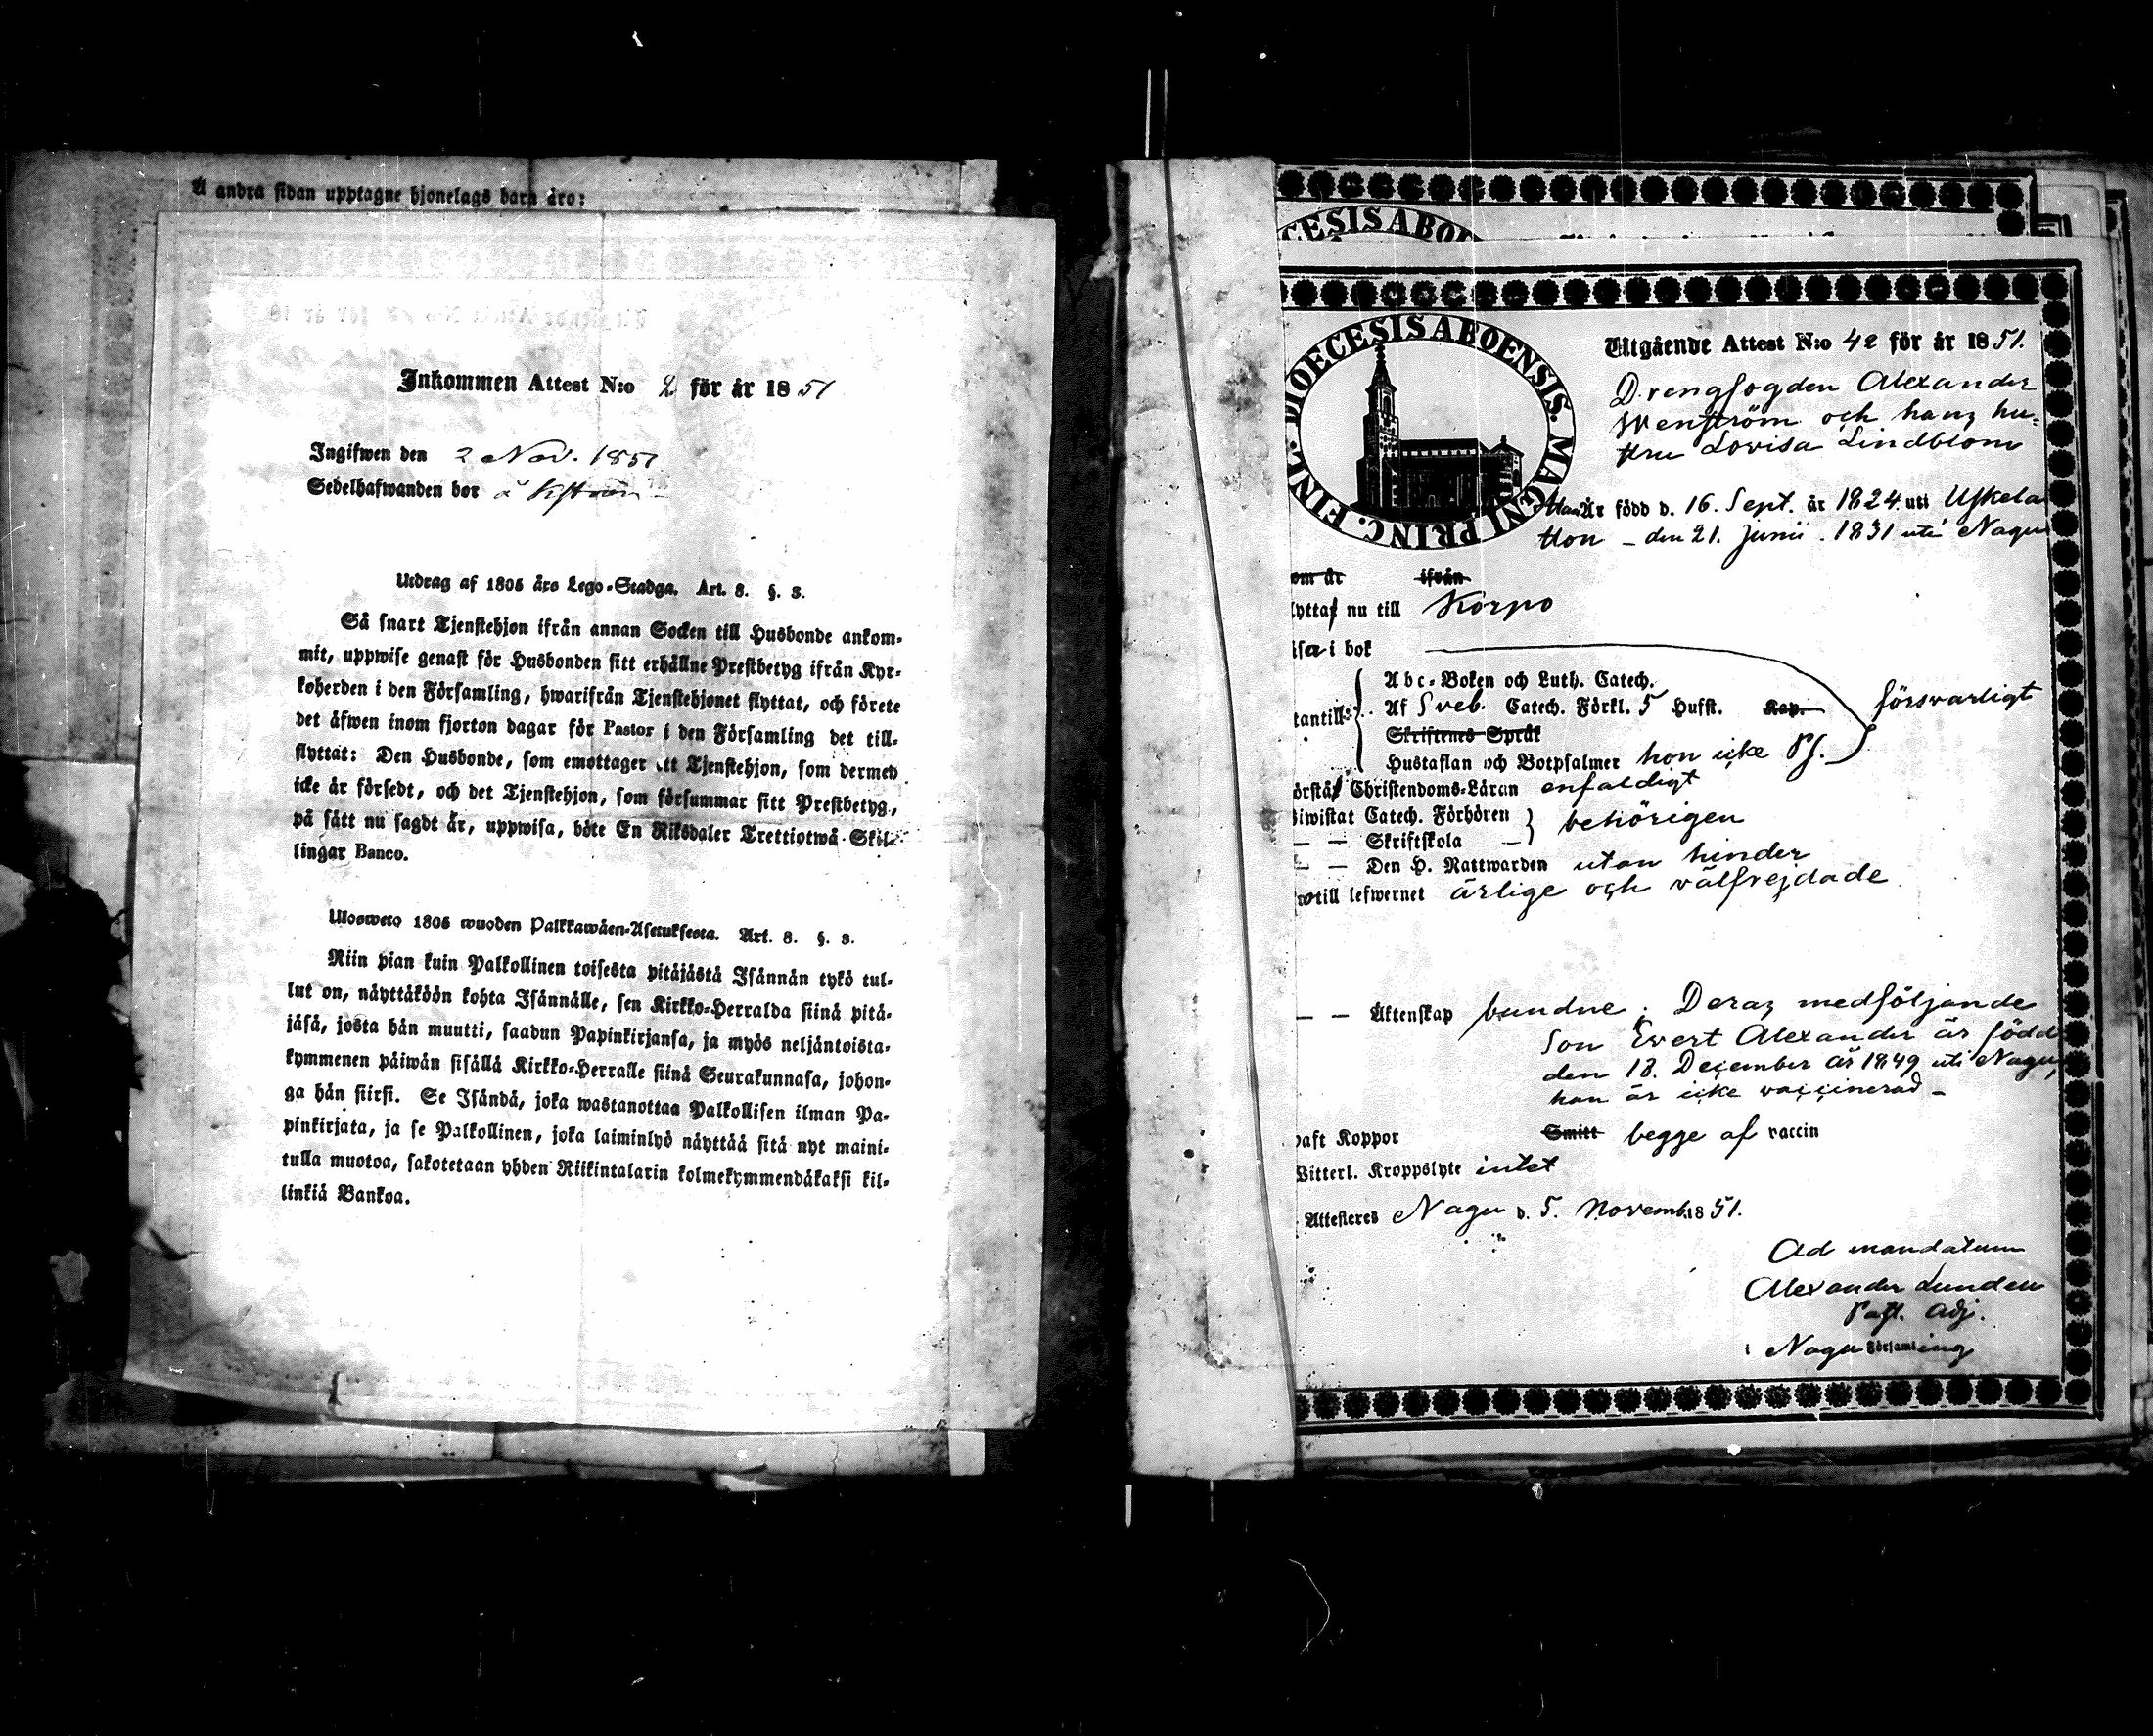 Å andra sidan upptagne hjonelags barn äro:
Inkommen Attest N:o 2 för år 1851
Ingifwen den 2 Nov. 1851
Sedelhafwanden bor å
Utdrag af 1805 års Lego-Stadga. Art. 8. §. 3.
Så snart Tjenstehjon ifrån annan Socken till Husbonde ankom-
mit, uppwise genast för Husbonden sitt erhållne Prestbetyg ifrån Kyr-
koherden i den Församling, hwarifrån Tjenstehjonet flyttat, och förete
det äfwen inom fjorton dagar för Pastor i den Församling det till-
flyttat: Den Husbonde, som emottager ett Tjenstehjon, som dermed
icke är försedt, och det Tjenstehjon, som försummar sitt Prestbetyg,
på sätt nu sagdt är, uppwisa, böte En Riksdaler Trettiotwå Skil-
lingar Banco.
Ulosweto 1805 wuoden Palkkawäen-Asetuksesta. Art. 8. §. 3.
Niin pian kuin Palkollinen toisesta pitäjästä Isännän tykö tul-
lut on, näyttäköön kohta Isännälle, sen Kirkko-Herralda siinä pitä-
jäsä, josta hän muutti, saadun Papinkirjansa, ja myös neljäntoista-
kymmenen päiwän sisällä Kirkko-Herralle siinä Seurakunnasa, johon-
ga hän siirsi. Se Isändä, joka wastanottaa Palkollisen ilman Pa-
pinkirjata, ja se Palkollinen, joka laiminlyö näyttää sitä nyt maini-
tulla muotoa, sakotetaan yhden Riikintalarin kolmekymmendäkaksi kil-
linkiä Bankoa.
CESIS ABOE
FINL. DIOECESIS ABOENSIS. MAGNI PRINC.
Utgående Attest N:o 42 för år 1851.
Drengfogden Alexander
Wenström och hans hu-
stru Lovisa Lindblom
Han Är född d. 16. Sept. år 1824 uti Uskela
Hon – den 21. Junii. 1831 uti Nagu
om år ifrån
lyttaf nu till Korpo
isa i bok
Abc-Boken och Luth. Catech.
tantill: Af Sveb. Catech. Förkl. 5 Hufst. Kap. försvarligt
Skriftenes Språk
Hustaflan och Botpsalmer hon icke Ps.
örstå Christendoms-Läran enfaldigt
iwistat Catech. Förhören } behörigen
— — Skriftskola —
— — Den H. Nattwarden utan hinder
till lefwernet ärlige och välfrejdade
— — Äktenskap bundne; Deras medföljande
son Evert Alexander är född
den 18. December år 1849 uti Nagu,
han är icke vaccinerad –
aft Koppor Smitt begge af vaccin
Witterl. Kroppslyte intet
Attesteres Nagu d. 5. Novemb. 1851.
Ad mandatum
Alexander Lunden
Past. Adj.
i Nagu Församling